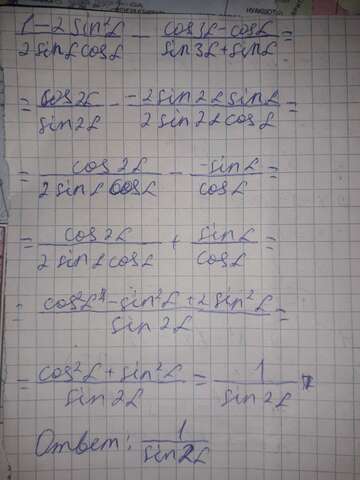 (1 - 2 sin²α)/(2 sinα cosα) - (cos3α - cosα)/(sin3α + sinα) =
= cos2α/sin2α - (-2 sin2α sinα)/(2 sin2α cosα) =
= cos2α/(2 sinα cosα) - (-sinα)/cosα =
= cos2α/(2 sinα cosα) + sinα/cosα =
= (cos²α - sin²α + 2 sin²α)/sin2α =
= (cos²α + sin²α)/sin2α = 1/sin2α
Ответ: 1/sin2α